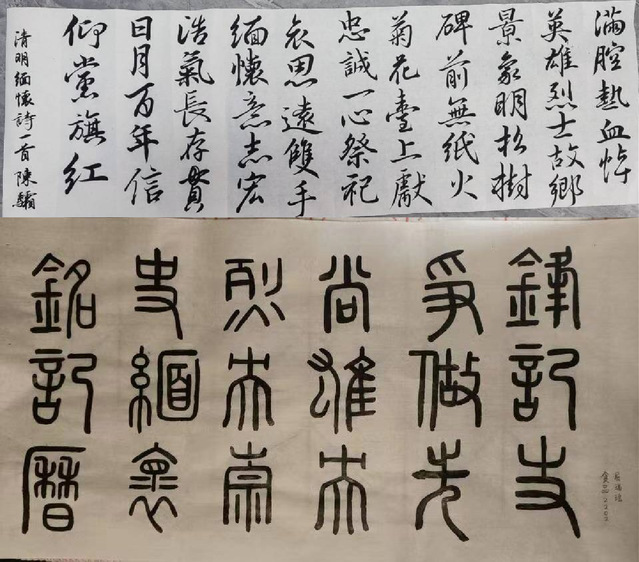 滿腔熱血悼
英雄烈士故鄉
景象明松樹
碑前無紙火
菊花臺上獻
忠誠一心祭祀
哀思遠雙手
緬懷意志宏
浩氣長存貫
日月百年信
仰黨旗紅
清明緬懷詩一首陳
銘記曆
史緬懷
烈崇
尚雄
爭做先
鋒記支